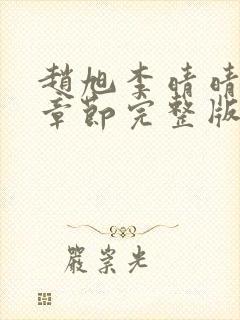 趙旭李晴晴
章節完整版
嚴崇光